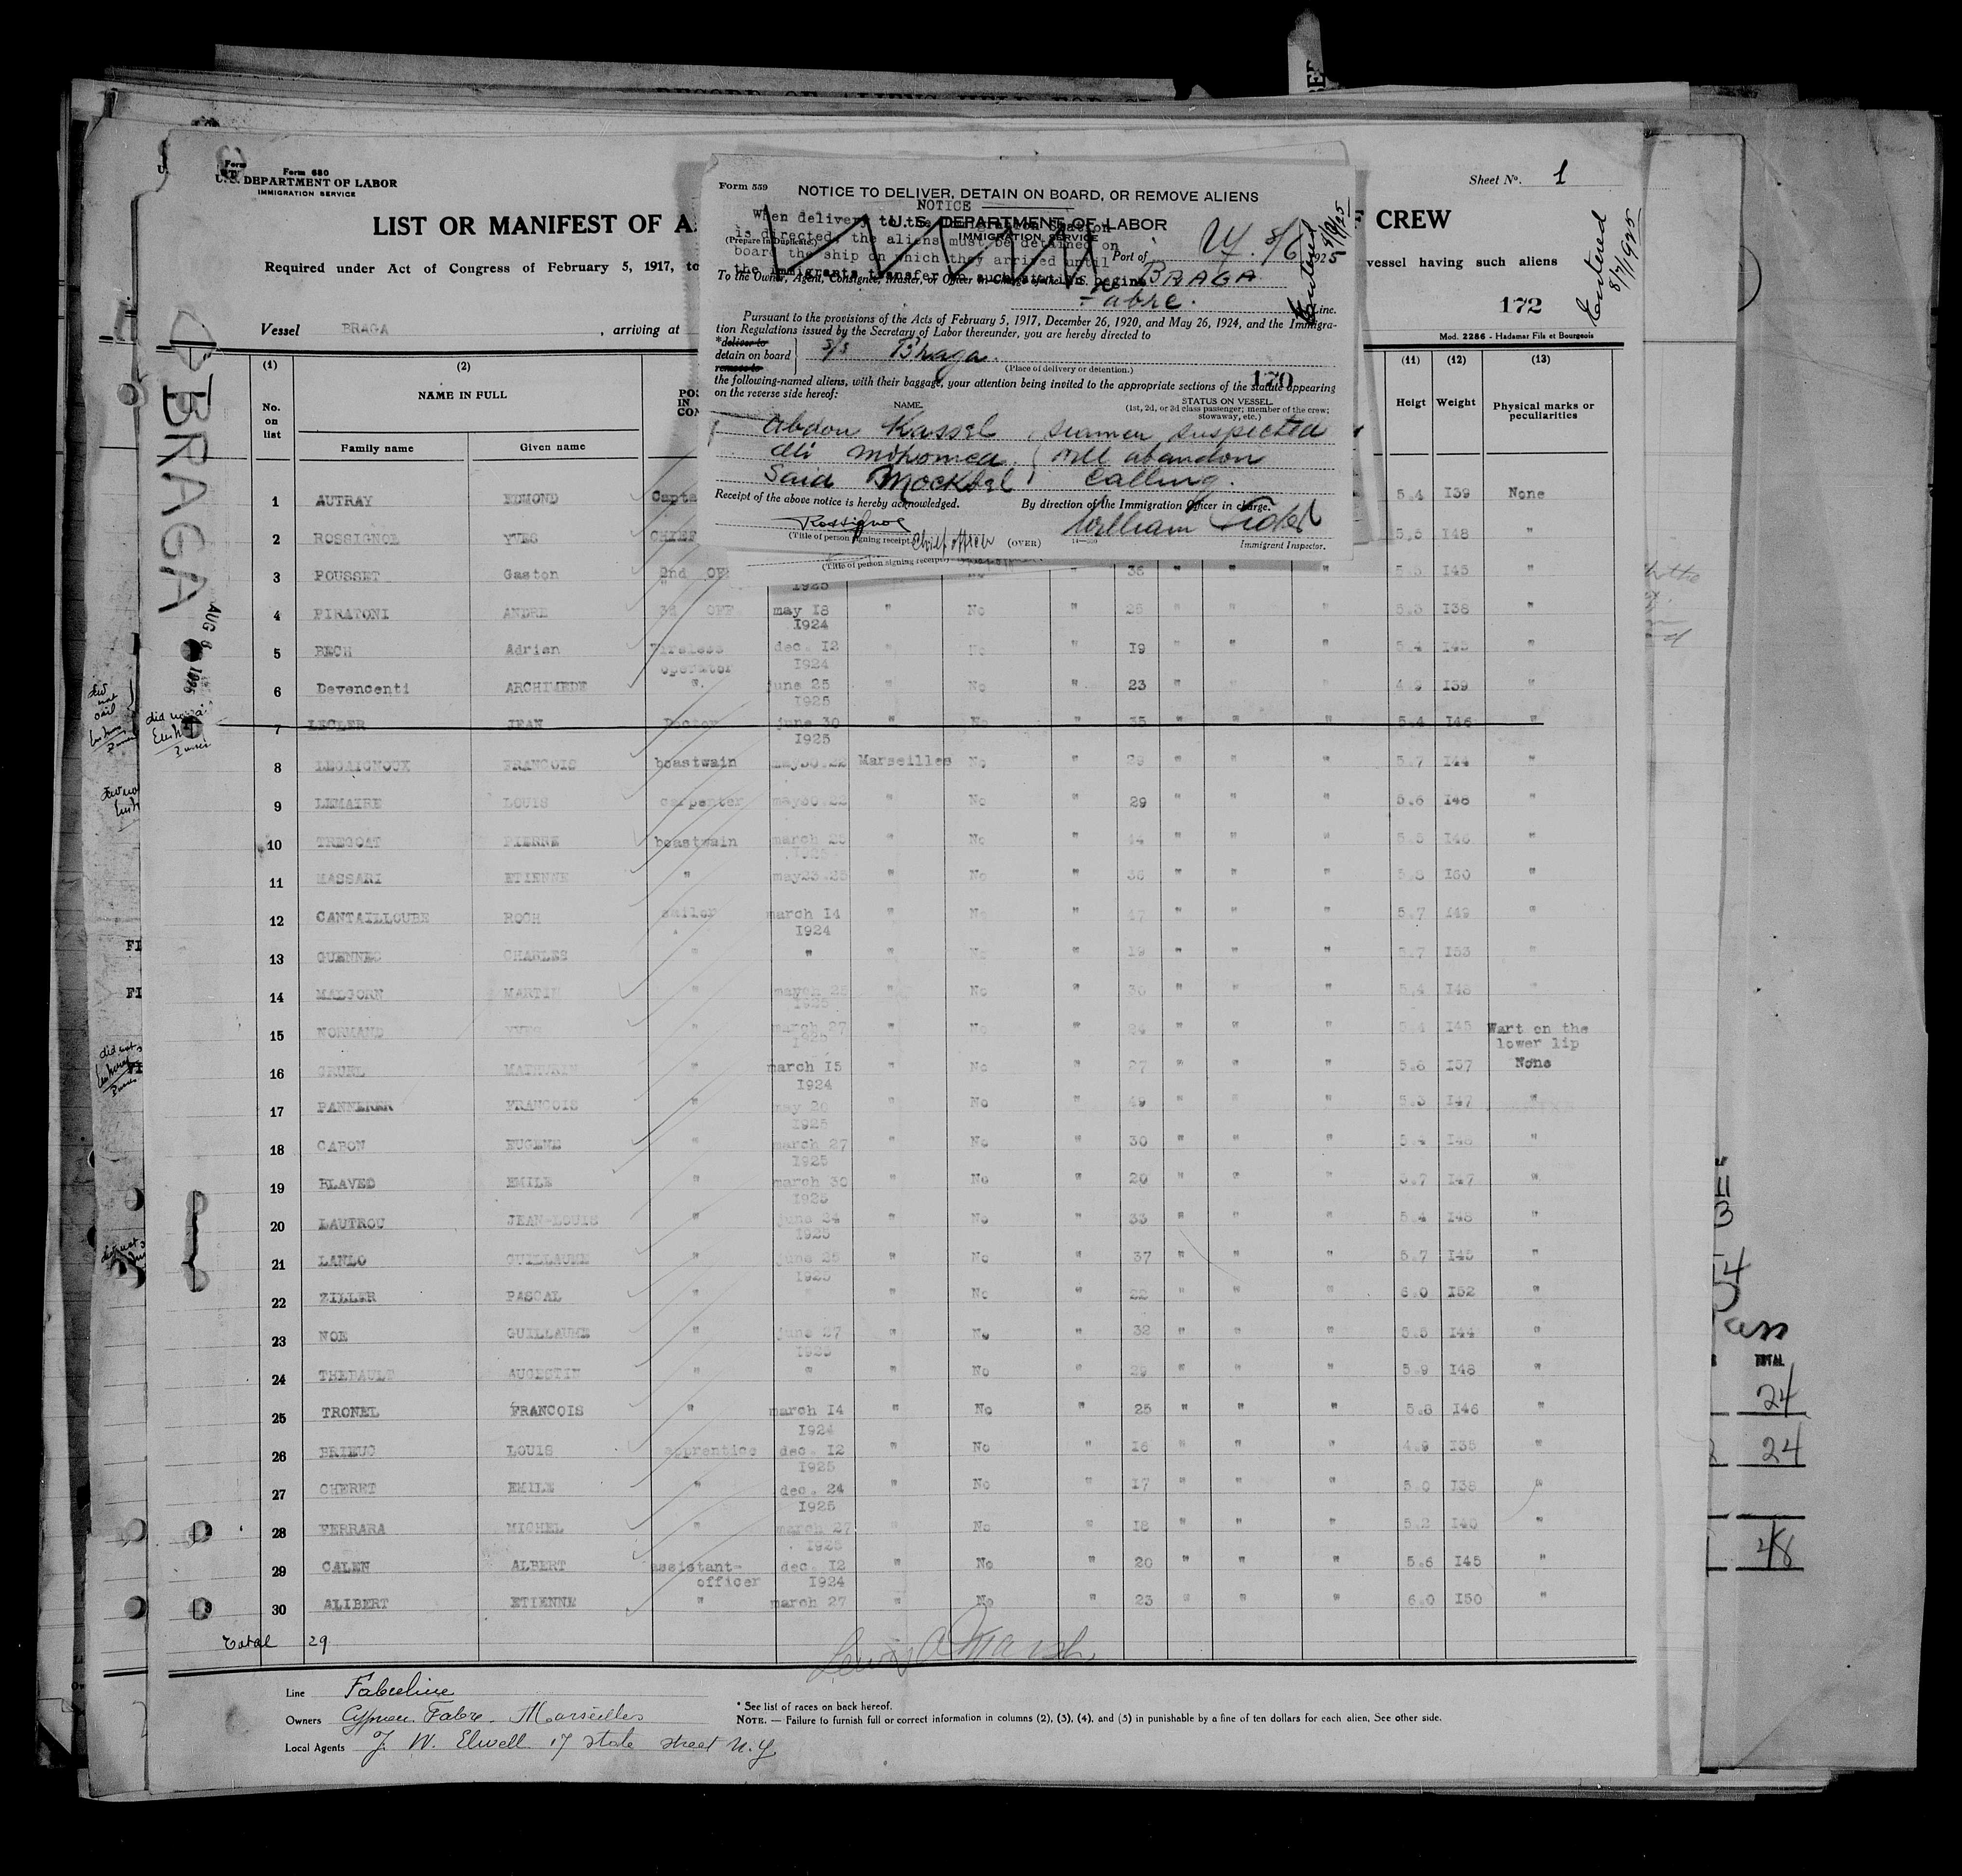 Form 680
U. S. DEPARTMENT OF LABOR
IMMIGRATION SERVICE
Sheet No. 1
LIST OR MANIFEST OF A
F CREW
Required under Act of Congress of February 5, 1917, to
vessel having such aliens
172
Entered
8/7/1925
Vessel BRAGA , arriving at
Mod. 2286 - Hadamar Fils et Bourgeois
BRAGA
AUG 6 1925
Form 559
NOTICE TO DELIVER, DETAIN ON BOARD, OR REMOVE ALIENS
NOTICE
When delivery to the
is directed, the aliens must be detained on
board the ship on which they arrived until
the immigrants transfer to such station is begins
U. S. DEPARTMENT OF LABOR
IMMIGRATION SERVICE
(Prepare in Duplicate.)
Port of N.Y. 8/6 1925
Entered
To the Owner, Agent, Consignee, Master, or Officer in Charge of the S. S. BRAGA
Fabre. Line.
Pursuant to the provisions of the Acts of February 5, 1917, December 26, 1920, and May 26, 1924, and the Immigra-
tion Regulations issued by the Secretary of Labor thereunder, you are hereby directed to
*deliver to
detain on board s/s Braga.
remove to
(Place of delivery or detention.)
170
the following-named aliens, with their baggage, your attention being invited to the appropriate sections of the statute appearing
on the reverse side hereof:
NAME. STATUS ON VESSEL
(1st, 2d, or 3d class passenger; member of the crew; stowaway, etc.)
Abdou Kassel seamen suspected
Ali Mohomed will abandon
Said Mocktel calling.
Receipt of the above notice is hereby acknowledged. By direction of the Immigration Officer in charge.
Rossignol William
(Title of person signing receipt) Chief officer (OVER) Immigrant Inspector.
(Title of person signing receipt)
(1) (2) (11) (12) (13)
No. on list NAME IN FULL Heigt Weight Physical marks or peculiarities
Family name Given name
1 AUTRAY EDMOND Capta 5.4 139 None
2 ROSSIGNOL YVES CHIEF 5.6 148 "
3 POUSSET Gaston 2nd OF 1925 No " 36 " " " 5.5 145 "
4 PIRATONI ANDRE 3d OFF may 18 1924 " No " 25 " " " 5.3 138 "
5 BECH Adrien Wireless operator dec. 12 1924 " No " 19 " " " 5.4 145 "
6 Devencenti ARCHIMEDE " june 25 1925 " No " 23 " " " 4.9 139 "
7 LECLER JEAN Doctor june 30 1925 " No " 35 " " " 5.4 146 "
8 LEGAIGNOUX FRANCOIS boastwain may30.22 Marseilles No " 29 " " " 5.7 144 "
9 LEMAIRE LOUIS carpenter may30.22 " No " 29 " " " 5.6 148 "
10 TREGOAT PIERRE boastwain march 25 1925 " No " 44 " " " 5.5 146 "
11 MASSARI ETIENNE " may23.25 " No " 36 " " " 5.8 160 "
12 CANTAILLOUBE ROCH sailor march 14 1924 " No " 47 " " " 5.7 149 "
13 GUENNEC CHARLES " " " No " 19 " " " 5.7 153 "
14 MALGORN MARTIN " march 25 1925 " No " 30 " " " 5.4 148 "
15 NORMAND YVES " march 27 1925 " No " 24 " " " 5.4 145 Wart on the lower lip
16 GRUEL MATHURIN " march 15 1924 " No " 27 " " " 5.8 157 None
17 PANNERER FRANCOIS " may 20 1925 " No " 49 " " " 5.3 147 "
18 CARON EUGENE " march 27 1925 " No " 30 " " " 5.4 148 "
19 BLAVED EMILE " march 30 1925 " No " 20 " " " 5.7 147 "
20 LAUTROU JEAN-LOUIS " june 24 1925 " No " 33 " " " 5.4 148 "
21 LANLO GUILLAUME " june 25 1925 " No " 37 " " " 5.7 145 "
22 ZILLER PASCAL " " " No " 22 " " " 6.0 152 "
23 NOE GUILLAUME " june 27 1925 " No " 32 " " " 5.5 144 "
24 THEBAULT AUGUSTIN " " " No " 29 " " " 5.9 148 "
25 TRONEL FRANCOIS " march 14 1924 " No " 25 " " " 5.8 146 "
26 BRIEUC LOUIS apprentice dec. 12 1925 " No " 16 " " " 4.9 135 "
27 CHERET EMILE " dec. 24 1925 " No " 17 " " " 5.0 138 "
28 FERRARA MICHEL " march 27 1925 " No " 18 " " " 5.2 140 "
29 CALEN ALBERT assistant-officer dec. 12 1924 " No " 20 " " " 5.6 145 "
30 ALIBERT ETIENNE " march 27 " No " 23 " " " 6.0 150 "
Total 29
Line Fabreline
Owners Cyprien Fabre. Marseilles
Local Agents J. W. Elwell 17 state street N.Y.
* See list of races on back hereof.
NOTE. — Failure to furnish full or correct information in columns (2), (3), (4), and (5) in punishable by a fine of ten dollars for each alien. See other side.
TOTAL
24
24
48